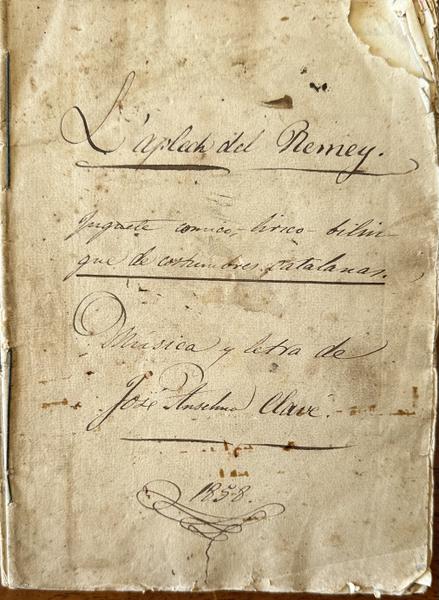 L'aplech del Remey.
Juguete cómico-lírico-bilin-
gue de costumbres catalanas.
Música y letra de
José Anselmo Clavé.
1858.